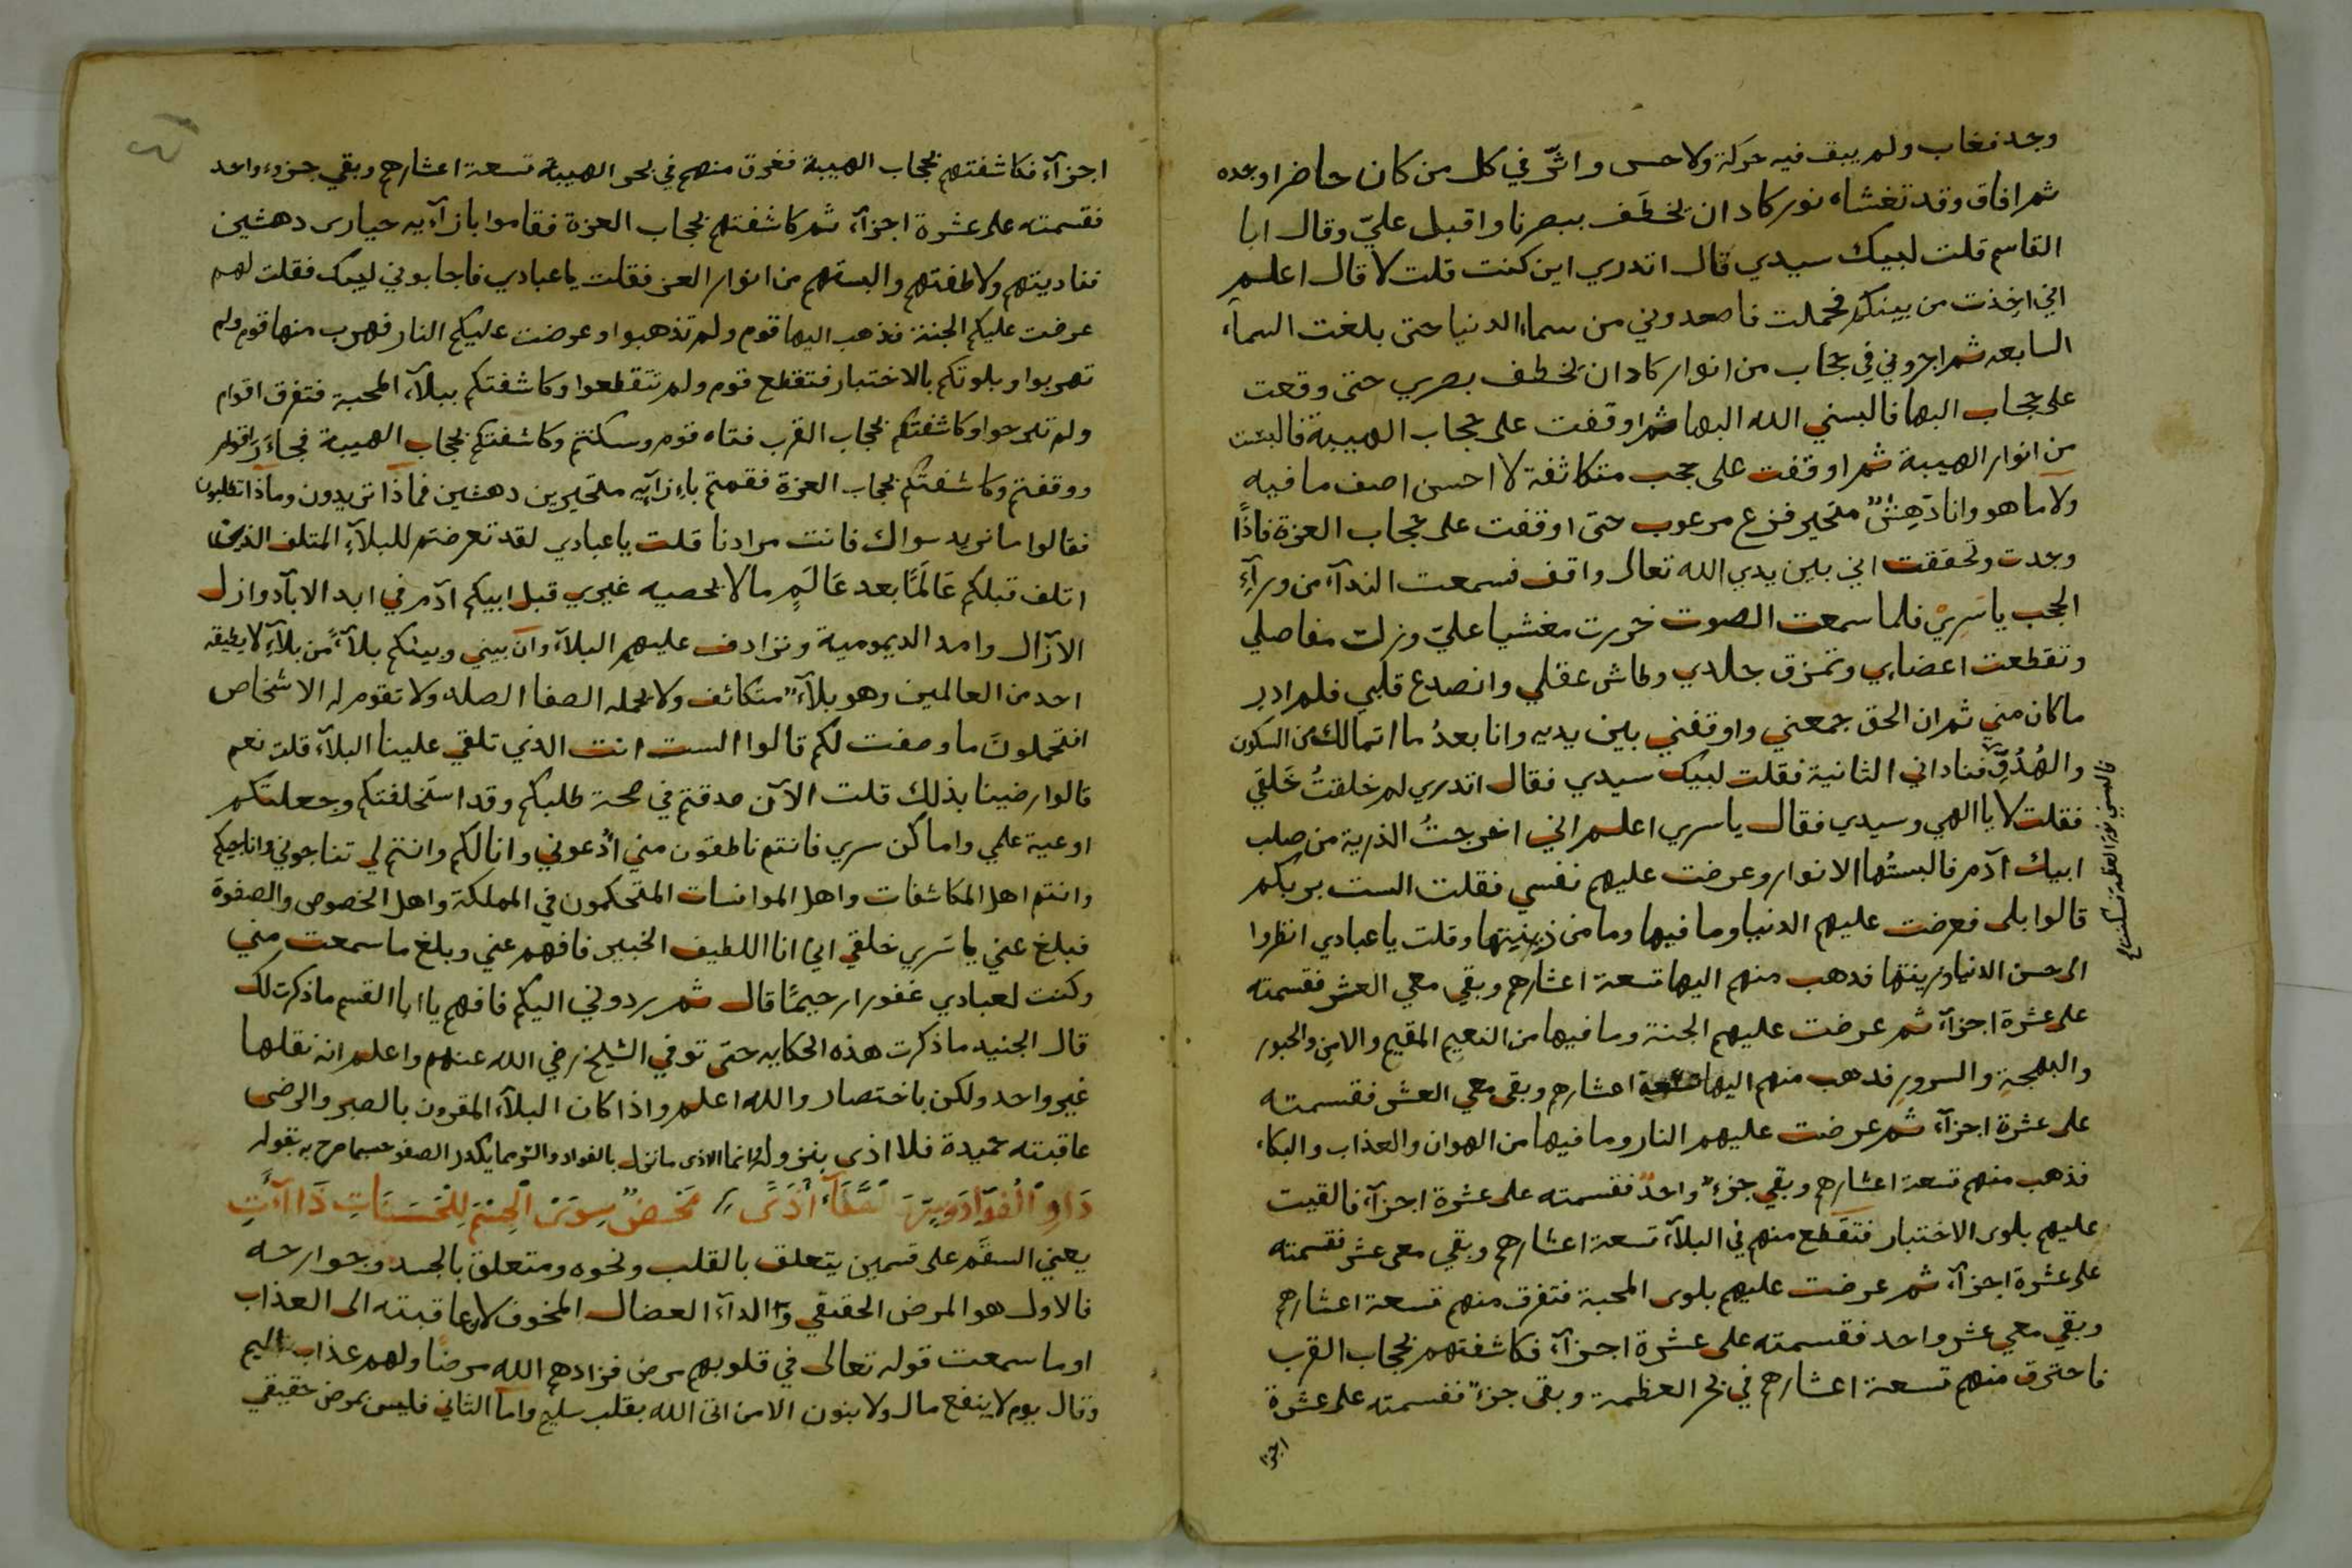 وجد فغاب ولم يبق فيه حركة ولا حس واثّر في كل من كان حاضرا وجده
ثم افاق وقد تغشاه نور كاد ان يخطَف ببصرنا واقبل عليّ وقال ابا
القاسم قلت لبيك سيدي قال اتدري اين كنت قلت لا قال اعلم
اني اخِذت من بينكم فحملت فاصعدوني من سماء الدنيا حتى بلغت السمآء
السابعه ثم اجروني في حجاب من انوار كاد ان يخطف بصري حتى وقعت
على حجاب البها فالبسني الله البها ثم اوقفت على حجاب الهيبة فالبست
من انوار الهيبة ثم اوقفت على حجب متكاثفة لا احسن اصف ما فيه
ولا ما هو وانا دَهِشٌ متحير فزع مرعوب حتى اوقفت على حجاب العزة فاذًا
وجدت وتحققت اني بين يدي الله تعالى واقف فسمعت الندآء من ورآءِ
الحجب يا سَرِيْ فلما سمعت الصوت خررت مغشيا عليّ وزلت مفاصلي
وتقطعت اعضايي وتمزق جلدي وطاش عقلي وانصدع قلبي فلم ادر
ما كان مني ثم ان الحق جمعني واوقفني بين يديه وانا بعدُ ما اتمالك من السكون
والهُدُوِّ فناداني الثانية فقلت لبيك سيدي فقال اتدري لم خلقتُ خَلقي
فقلت لا يا الهي وسيدي فقال يا سري اعلم اني اخرجتُ الذرية من صلب
ابيك آدم فالبستُها الانوار وعرضت عليهم نفسي فقلت الست بربكم
قالوا بلى فعرضت عليهم الدنيا وما فيها وما من زينتها وقلت يا عبادي انظروا
الى حسن الدنيا وزينتها فذهب منهم اليها تسعة اعشارهم وبقي معي العشر فقسمته
على عشرة اجزآء ثم عرضت عليهم الجنة وما فيها من النعيم المقيم والامن والحبور
والبهجةِ والسرورِ فذهب منهم اليها تسعة اعشارهم وبقي معي العشر فقسمته
على عشرة اجزآء ثم عرضت عليهم النار وما فيها من الهوان والعذاب والبكاء
فذهب منهم تسعة اعشارهم وبقي جزءٌ واحدٌ فقسمته على عشرة اجزآء فالقيت
عليهم بلوى الاختبار فتقطع منهم في البلآء تسعة اعشارهم وبقي معي عشر فقسمته
على عشرة اجزآء ثم عرضت عليهم بلوى المحبة فتفرق منهم تسعة اعشارهم
وبقي معي عشر واحد فقسمته على عشرة اجزآء فكاشفتهم بحجاب القرب
فاحترق منهم تسعة اعشارهم في بحر العظمة وبقي جزءٌ فقسمته على عشرة
اجزء
اجزآء فكاشفتهم بحجاب الهيبة فغرق منهم في بحر الهيبة تسعة اعشارهم وبقي جزوء واحد
فقسمته على عشرة اجزآء ثم كاشفتهم بحجاب العزة فقاموا بازآءيه حيارى دهشين
فناديتهم ولاطفتهم والبستهم من انوار العز فقلت يا عبادي فاجابوني لبيك فقلت لهم
عرضت عليكم الجنة فذهب اليها قوم ولم تذهبوا وعرضت عليكم النار فهرب منها قوم ولم
تهربوا وبلوتكم بالاختبار فتقطع قوم ولم تتقطعوا وكاشفتكم ببلآء المحبة فتفرق اقوام
ولم تبرحوا وكاشفتكم بحجاب القرب فتاه قوم وسكنتم وكاشفتكم بحجاب الهيبة فجاءَرَ اقوام
ووقفتم وكاشفتكم بحجاب العزة فقمتم باءزآئيه متحيرين دهشين فماذا تريدون وماذا تطلبون
فقالوا ما نريد سواك فانت مرادنا قلت يا عبادي لقد تعرضتم للبلآء المتلف الذي
اتلف قبلكم عَالَمًا بعد عَالَمٍ ما لا يحصيه غيري قبل ابيكم آدم في ابد الابآد وازل
الآزال وامد الديمومية وترادف عليهم البلآء وان بيني وبينكم بلآءً من بلآءٍ لا يطيقه
احد من العالمين وهو بلآءٌ متكاثف ولا يحمله الصفا الصلد ولا تقوم له الاشخاص
افتحملون ما وصفت لكم قالوا الست انت الذي تلقي علينا البلآء قلت نعم
قالوا رضينا بذلك قلت الآن صدقتم في صحة طلبكم وقد استخلفتكم وجعلتكم
اوعية علمي واماكن سري فانتم ناطقون مني اُدْعوني وانا لكم وانتم لي تناجوني واناجيكم
وانتم اهل المكاشفات واهل الموانسات المتحكمون في المملكة واهل الخصوص والصفوة
فبلغ عني يا سَري خلقي انيْ انا اللطيف الخبير فافهم عني وبلغ ما سمعت مني
وكنت لعبادي غفورا رحيمًا قال ثم ردوني اليكم فافهم يا ابا القسم ما ذكرت لك
قال الجنيد ما ذكرت هذه الحكايه حتى توفي الشيخ رضي الله عنهم واعلم انه نقلها
غير واحد ولكن باختصار والله اعلم واذا كان البلآء المقرون بالصبر والرضى
عاقبته حميدة فلا اذى بنزوله وانما الاذى ما نزل بالفواد والتوى ما يكدر الصفو حسبما صرح به بقوله
يعني السقم على قسمين يتعلق بالقلب ونحوه ومتعلق بالجسد وجوارحه
فالاول هو المرض الحقيقي والدآء العضال المخوف لان عاقبته الى العذاب
اوما سمعت قوله تعالى في قلوبهم مرض فزادهم الله مرضًا ولهم عذاب اليم
وقال يوم لا ينفع مال ولا بنون الا من اتى الله بقلب سليم واما الثاني فليس بمرض حقيقي